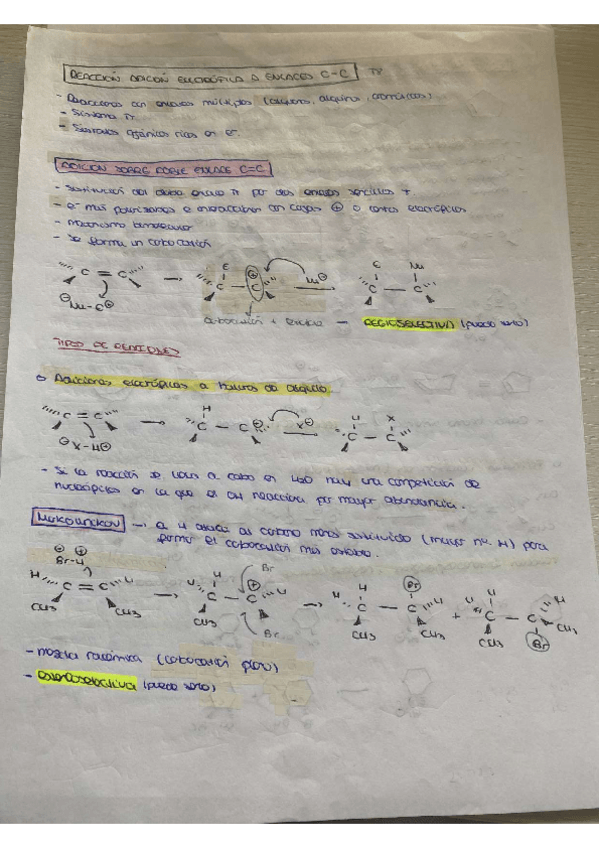 REACCIÓN ADICIÓN ELECTRÓFILA A ENLACES C-C π
- Reacciones con enlaces múltiples (alquenos, alquinos, aromáticos)
- Sistema π
- Sustratos orgánicos ricos en e-.
ADICIÓN SOBRE DOBLE ENLACE C=C
- Sustitución del doble enlace π por dos enlaces sencillos σ.
- e- más polarizables e interaccionan con cargas ⊕ o centros electrófilos
- Mecanismo bimolecular
- Se forma un carbocatión
E E Nu
C = C → C - C Nu⊖ → C - C
⊖Nu-E⊕
carbocatión + estable — REGIOSELECTIVA (puede serlo)
TIPOS DE REACCIONES
Adiciones electrófilas a haluros de alquilo
H H X
C = C → C - C⊕ X⊖ → C - C
⊖X-H⊕
- Si la reacción se lleva a cabo en H2O hay una competición de
nucleófilos en la que el OH reacciona por mayor abundancia.
MARKOVNIKOV → el H ataca al carbono menos sustituido (mayor nº H) para
formar el carbocatión más estable.
⊖ ⊕
Br-H H Br H Br H
H C = C H → H C - C H → H C - C H + H C - C H
CH3 CH3 CH3 Br CH3 CH3 CH3 Br CH3
- mezcla racémica (carbocatión plano)
- estereoselectiva (puede serlo)